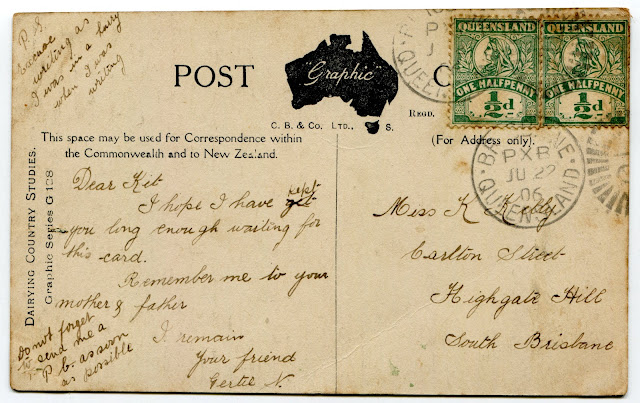 P.S.
Excuse
writing as
I was in a hurry
when I was
writing
POST
"Graphic"
C
REGD.
C. B. & Co. LTD., S.
QUEENSLAND
ONE HALFPENNY
½d
QUEENSLAND
ONE HALFPENNY
½d
This space may be used for Correspondence within
the Commonwealth and to New Zealand.
(For Address only).
BRISBANE
PXB
JU 22
06
QUEENSLAND
DAIRYING COUNTRY STUDIES.
Graphic Series G 128
Dear Kit
I hope I have kept
you long enough waiting for
this card.
Remember me to your
mother & father
I remain
Your friend
Gertie N.
Do not forget
to send me a
P b. as soon
as possible
Miss K Kelly
Carlton Street
Highgate Hill
South Brisbane